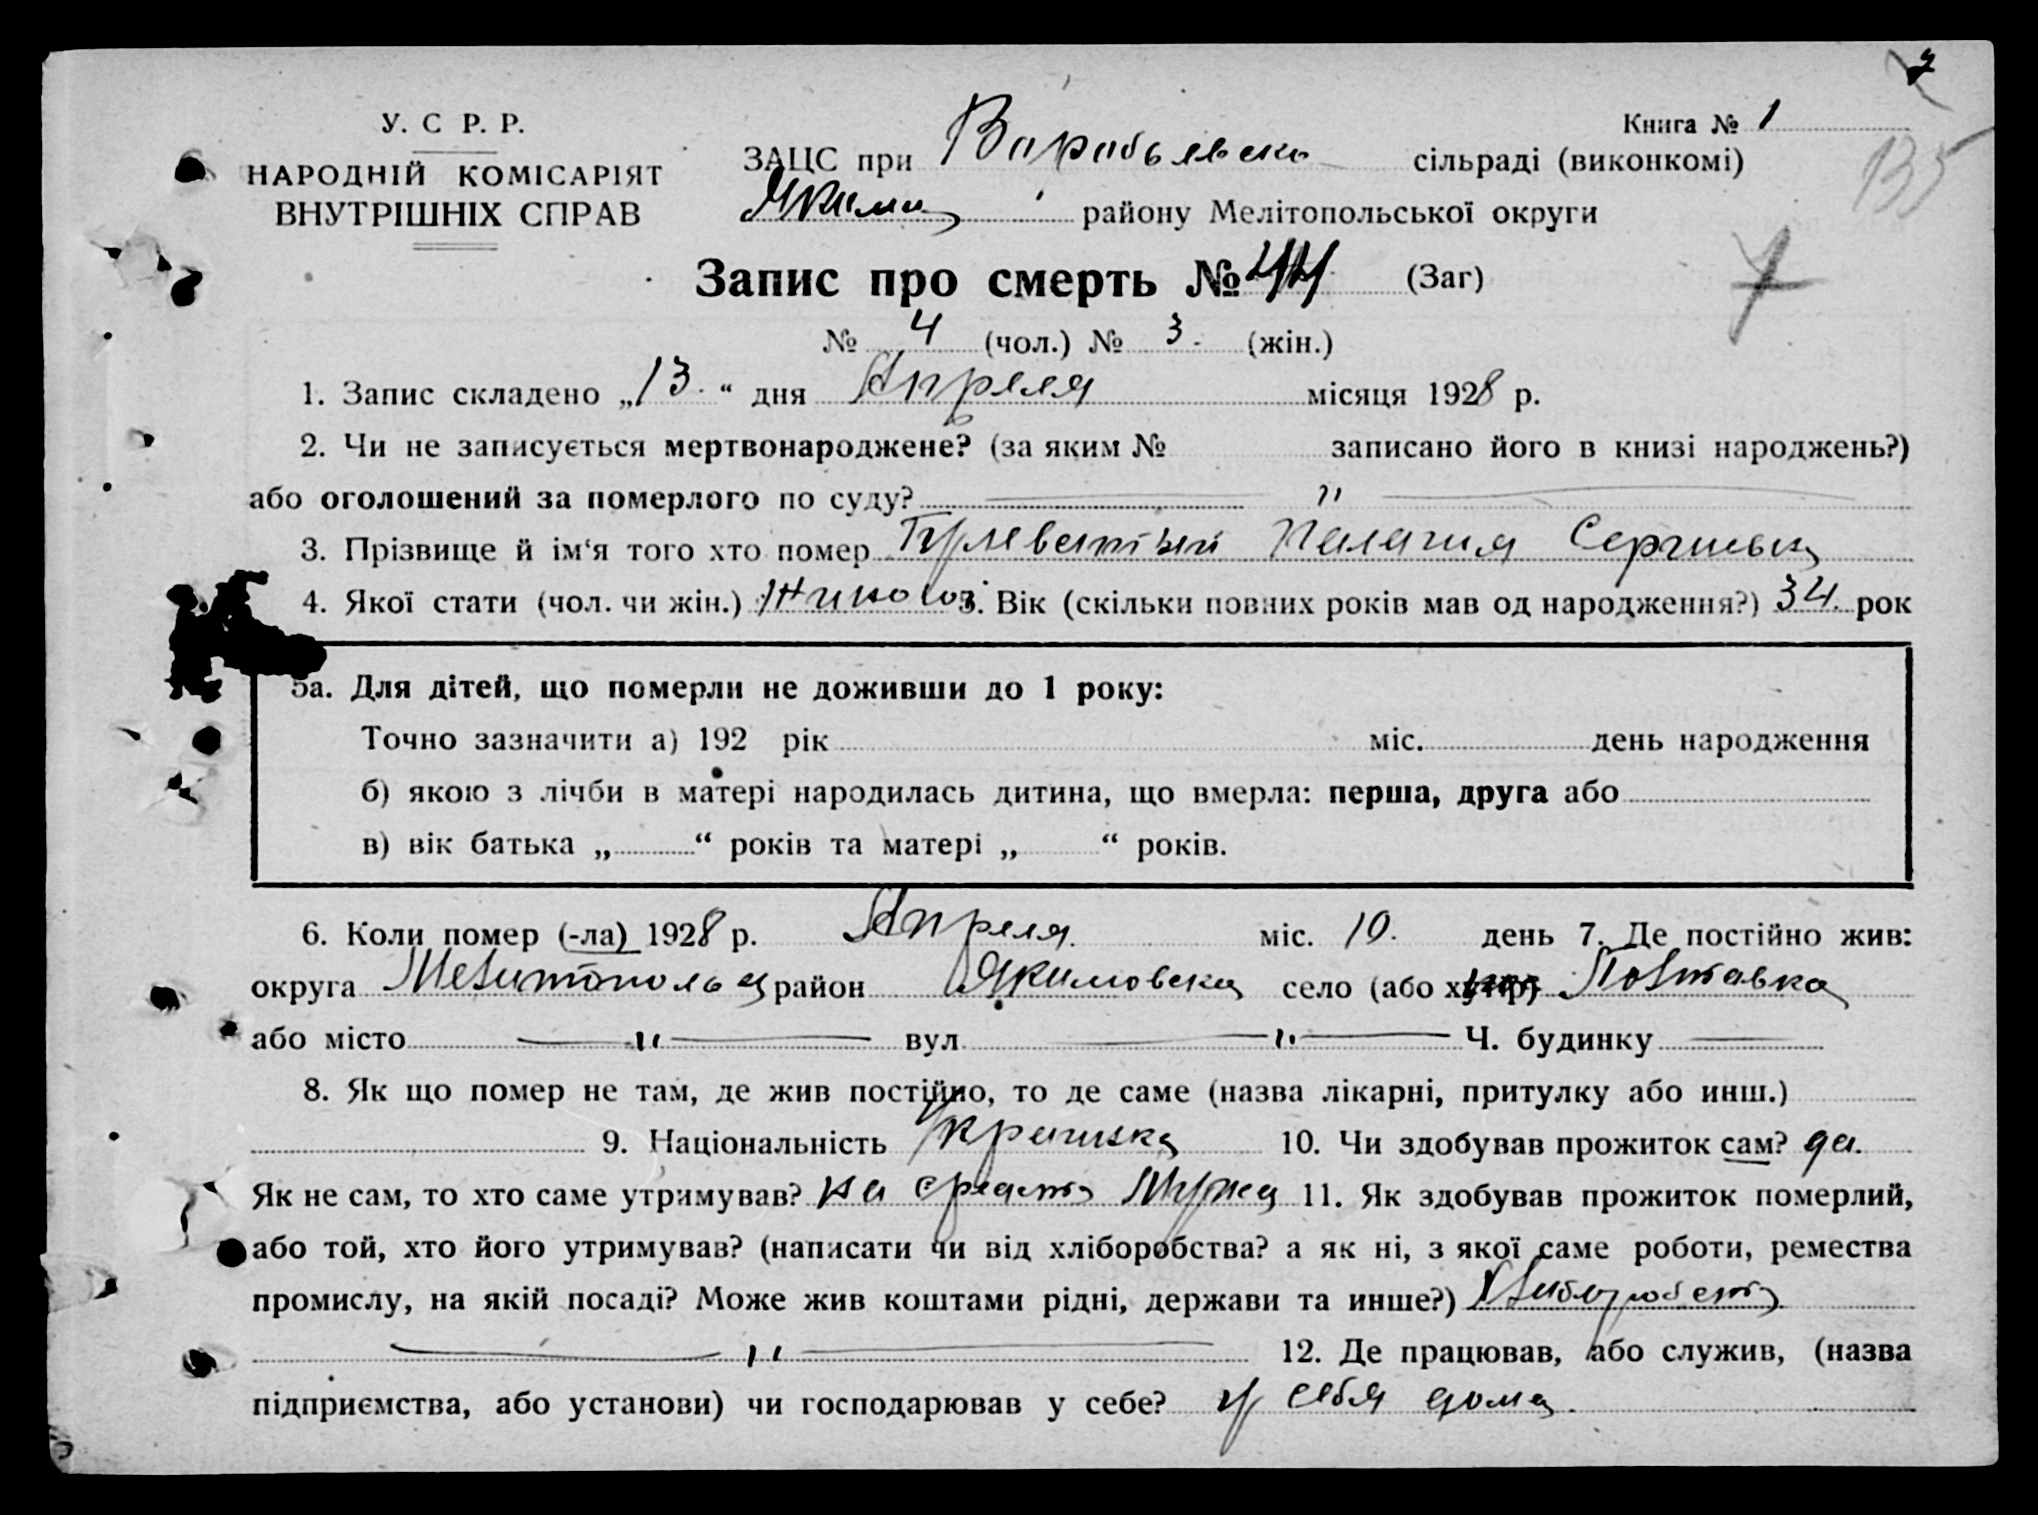 У. С Р. Р.
НАРОДНІЙ КОМІСАРІЯТ
ВНУТРІШНІХ СПРАВ
Книга № 1
135
ЗАЦС при Варабьевско сільраді (виконкомі)
Якимц району Мелітопольської округи
Запис про смерть № (Заг)
7
№ 4 (чол.) № 3 (жін.)
1. Запис складено „13“ дня Апреля місяця 1928 р.
2. Чи не записується мертвонароджене? (за яким № записано його в книзі народжень?)
або оголошений за померлого по суду? — " —
3. Прізвище й ім‘я того хто помер Пелагия
4. Якої стати (чол. чи жін.) 5. Вік (скільки повних років мав од народження?) 34 рок
5а. Для дітей, що померли не доживши до 1 року:
Точно зазначити а) 192 рік міс. день народження
б) якою з лічби в матері народилась дитина, що вмерла: перша, друга або
в) вік батька „ “ років та матері „ “ років.
6. Коли помер (-ла) 1928 р. Апреля міс. 10 день 7. Де постійно жив:
округа район Якимовска село (або хутір) Полтавка
або місто — " — вул — " — Ч. будинку —
8. Як що помер не там, де жив постійно, то де саме (назва лікарні, притулку або инш.)
9. Національність 10. Чи здобував прожиток сам? да
Як не сам, то хто саме утримував? на средств мужа 11. Як здобував прожиток померлий,
або той, хто його утримував? (написати чи від хліборобства? а як ні, з якої саме роботи, ремества
промислу, на якій посаді? Може жив коштами рідні, держави та инше?)
— " — 12. Де працював, або служив, (назва
підприємства, або установи) чи господарював у себе? у себя дома